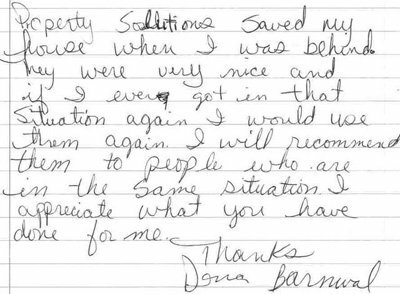 Property Solutions saved my
house when I was behind.
hey were very nice and
if I ever got in that
situation again I would use
them again. I will recommend
them to people who are
in the same situation. I
appreciate what you have
done for me.
Thanks
Barnwal